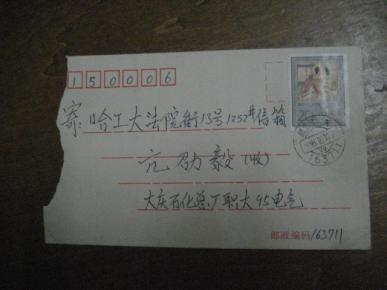 150006
寄:哈工大法院街13号1252#信箱
亢劭毅(收)
大庆石化总厂职大95电气
邮政编码163711